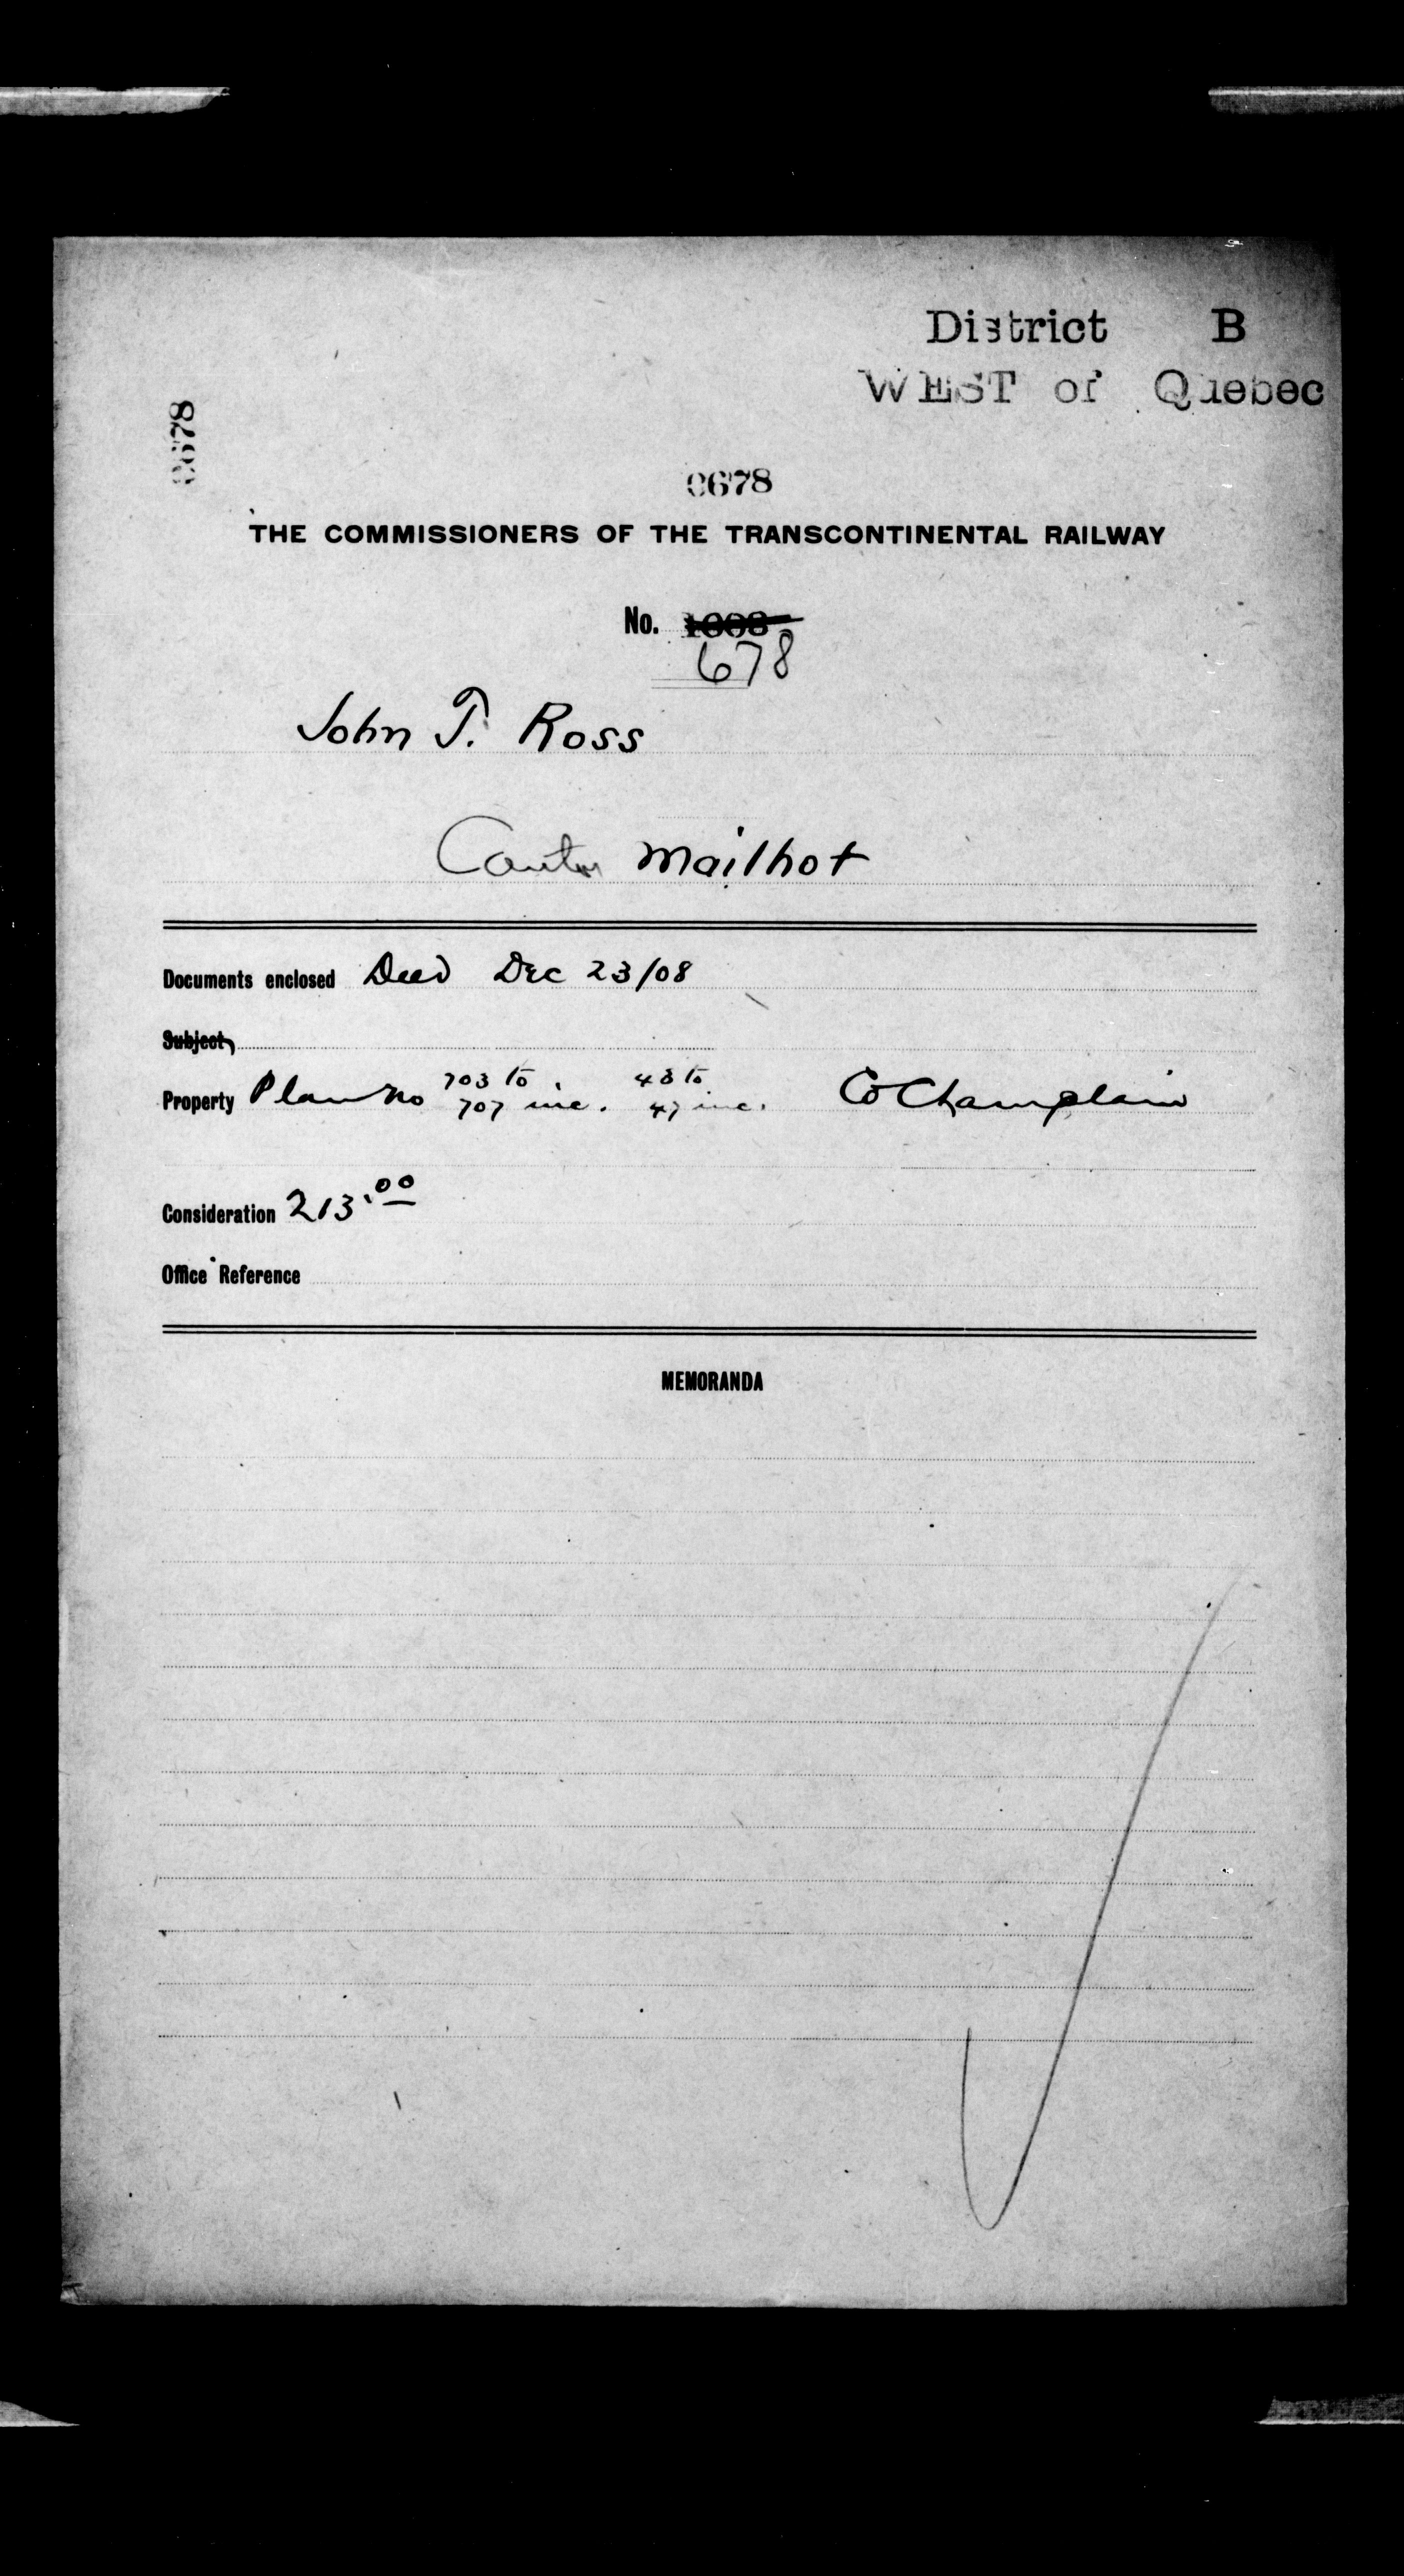 District B
WEST of Quebec
0678
0678
THE COMMISSIONERS OF THE TRANSCONTINENTAL RAILWAY
No.
678
John T. Ross
Canton Mailhot
Documents enclosed Deed Dec 23/08
Subject
Property Plan No 703 to 707 inc. 43 to 47 inc. Co Champlain
Consideration 213.00
Office Reference
MEMORANDA